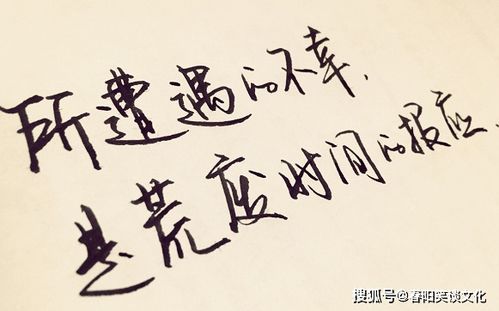 所遭遇的不幸,
是荒废时间的报应.
搜狐号@春阳笑谈文化